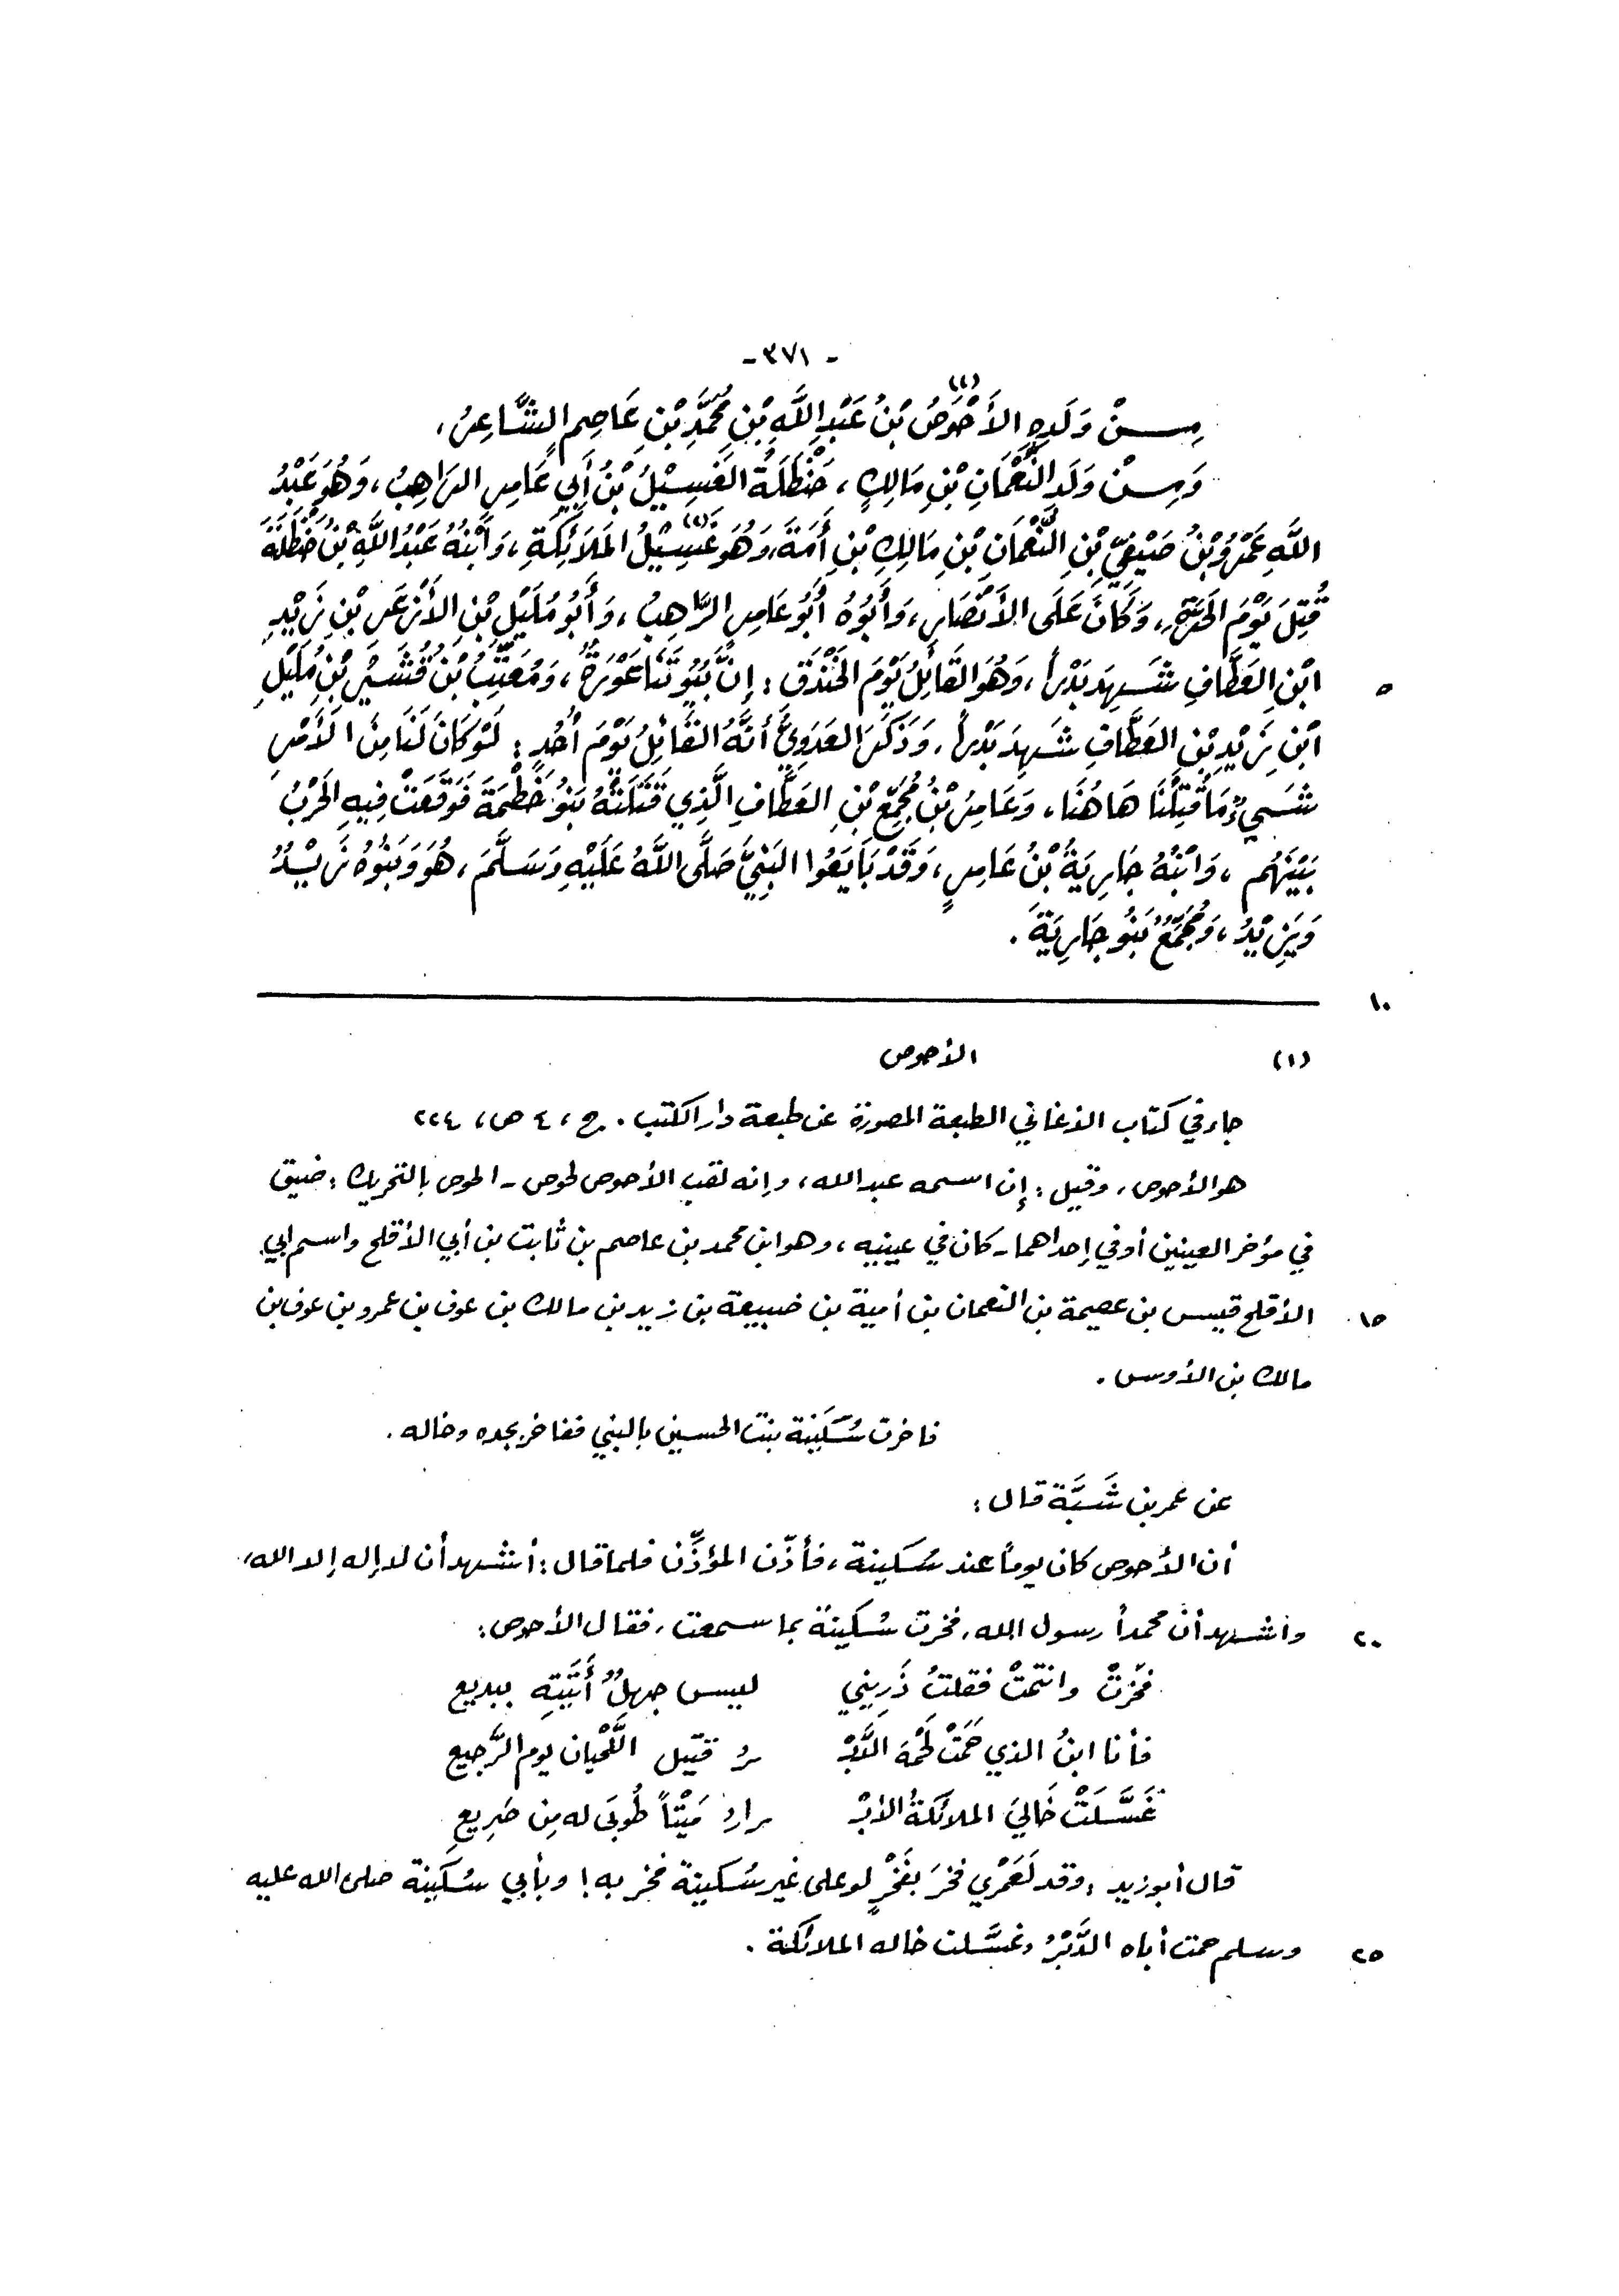 - ٣٧١ -
مِنْ وَلَدِهِ الأَحْوَصُ (١) بْنُ عَبْدِ اللَّهِ بْنِ مُحَمَّدِ بْنِ عَاصِمٍ الشَّاعِرُ ،
وَمِنْ وَلَدِ النُّعْمَانِ بْنِ مَالِكٍ ، حَنْظَلَةُ الغَسِيْلُ بْنُ أَبِي عَامِرٍ الرَاهِبُ ، وَهُوَ عَبْدُ
اللَّهِ عَمْرُو بْنُ صَيْفِيِّ بْنِ النُّعْمَانِ بْنِ مَالِكِ بْنِ أَمَةَ ، وَهُوَ غَسِيْلُ (٢) المَلَائِكَةِ ، وَابْنُهُ عَبْدُ اللَّهِ بْنُ حَنْظَلَةَ
قُتِلَ يَوْمَ الحَرَّةِ ، وَكَانَ عَلَى الأَنْصَارِ ، وَأَبُوهُ أَبُو عَامِرٍ الرَّاهِبُ ، وَأَبُو مُلَيْلِ بْنِ الأَزْعَرِ بْنِ زَيْدِ
٥ ابْنِ العَطَّافِ شَهِدَ بَدْرَاً ، وَهُوَ القَائِلُ يَوْمَ الخَنْدَقِ : إِنَّ بُيُوتَنَا عَوْرَةٌ ، وَمُعَتِّبُ بْنُ قُشَيْرِ بْنِ مُلَيْلِ
ابْنِ زَيْدِ بْنِ العَطَّافِ شَهِدَ بَدْرَاً ، وَذَكَرَ العَدَوِيُّ أَنَّهُ القَائِلُ يَوْمَ أُحُدٍ : لَوْ كَانَ لَنَا مِنَ الأَمْرِ
شَيءٌ مَا قُتِلْنَا هَاهُنَا ، وَعَامِرُ بْنُ مُجَمِّعِ بْنِ العَطَّافِ الَّذِي قَتَلَتْهُ بَنُو خَطْمَةَ فَوَقَعَتْ فِيهِ الحَرْبُ
بَيْنَهُم ، وَابْنُهُ جَارِيَةُ بْنُ عَامِرٍ ، وَقَدْ بَايَعُوا النَبِيَّ صَلَّى اللَّهُ عَلَيْهِ وَسَلَّمَ ، هُوَ وَبَنُوهُ زَيْدُ
وَيَزِيْدُ ، وَمُجَمِّعُ بَنُو جَارِيَةَ .
١٠
(١) الأحوص
جاء في كتاب الأغاني الطبعة المصورة عن طبعة دار الكتب . ج ، ٤ ص ، ٢٢٤
هو الأحوص ، وقيل : إن اسمه عبد الله ، وإنه لقب الأحوص لحوص - الحوص بالتحريك : ضيق
في مؤخر العينين أو في إحداهما - كان في عينيه ، وهو ابن محمد بن عاصم بن ثابت بن أبي الأقلح واسم أبي
١٥ الأقلح قيس بن عصيمة بن النعمان بن أمية بن ضبيعة بن زيد بن مالك بن عوف بن عمرو بن عوف بن
مالك بن الأوس .
فاخرت سُكَيْنة بنت الحسين بالنبي ففاخر بجده وخاله .
عن عمر بن شَبَّة قال :
أن الأحوص كان يوماً عند سُكينة ، فأذّن المؤذّن فلما قال : أشهد أن لا إله إلا الله ،
٢٠ وأشهد أن محمداً رسول الله ، فخرت سُكينة بما سمعت ، فقال الأحوص :
فخرتْ وانتمتْ فقلتُ ذَرِيني ليس جهلٌ أَتَيْتِهِ ببديع
فأنا ابنُ الذي حَمَتْ لَحْمَهُ الدَّبْـ ـرُ قتيل اللَّحْيان يوم الرَّجيع
غَسَّلَتْ خَالِيَ الملائكةُ الأبْـ ـرارُ مَيْتاً طُوبَى له مِن صَرِيعِ
قال أبو زيد : وقد لَعَمْري فخرَ بفَخْرٍ لو على غير سُكينة فخر به ! وبأبي سُكينة صلى الله عليه
٢٥ وسلم حمت أباه الدَّبْرُ وغسَّلت خاله الملائكة .